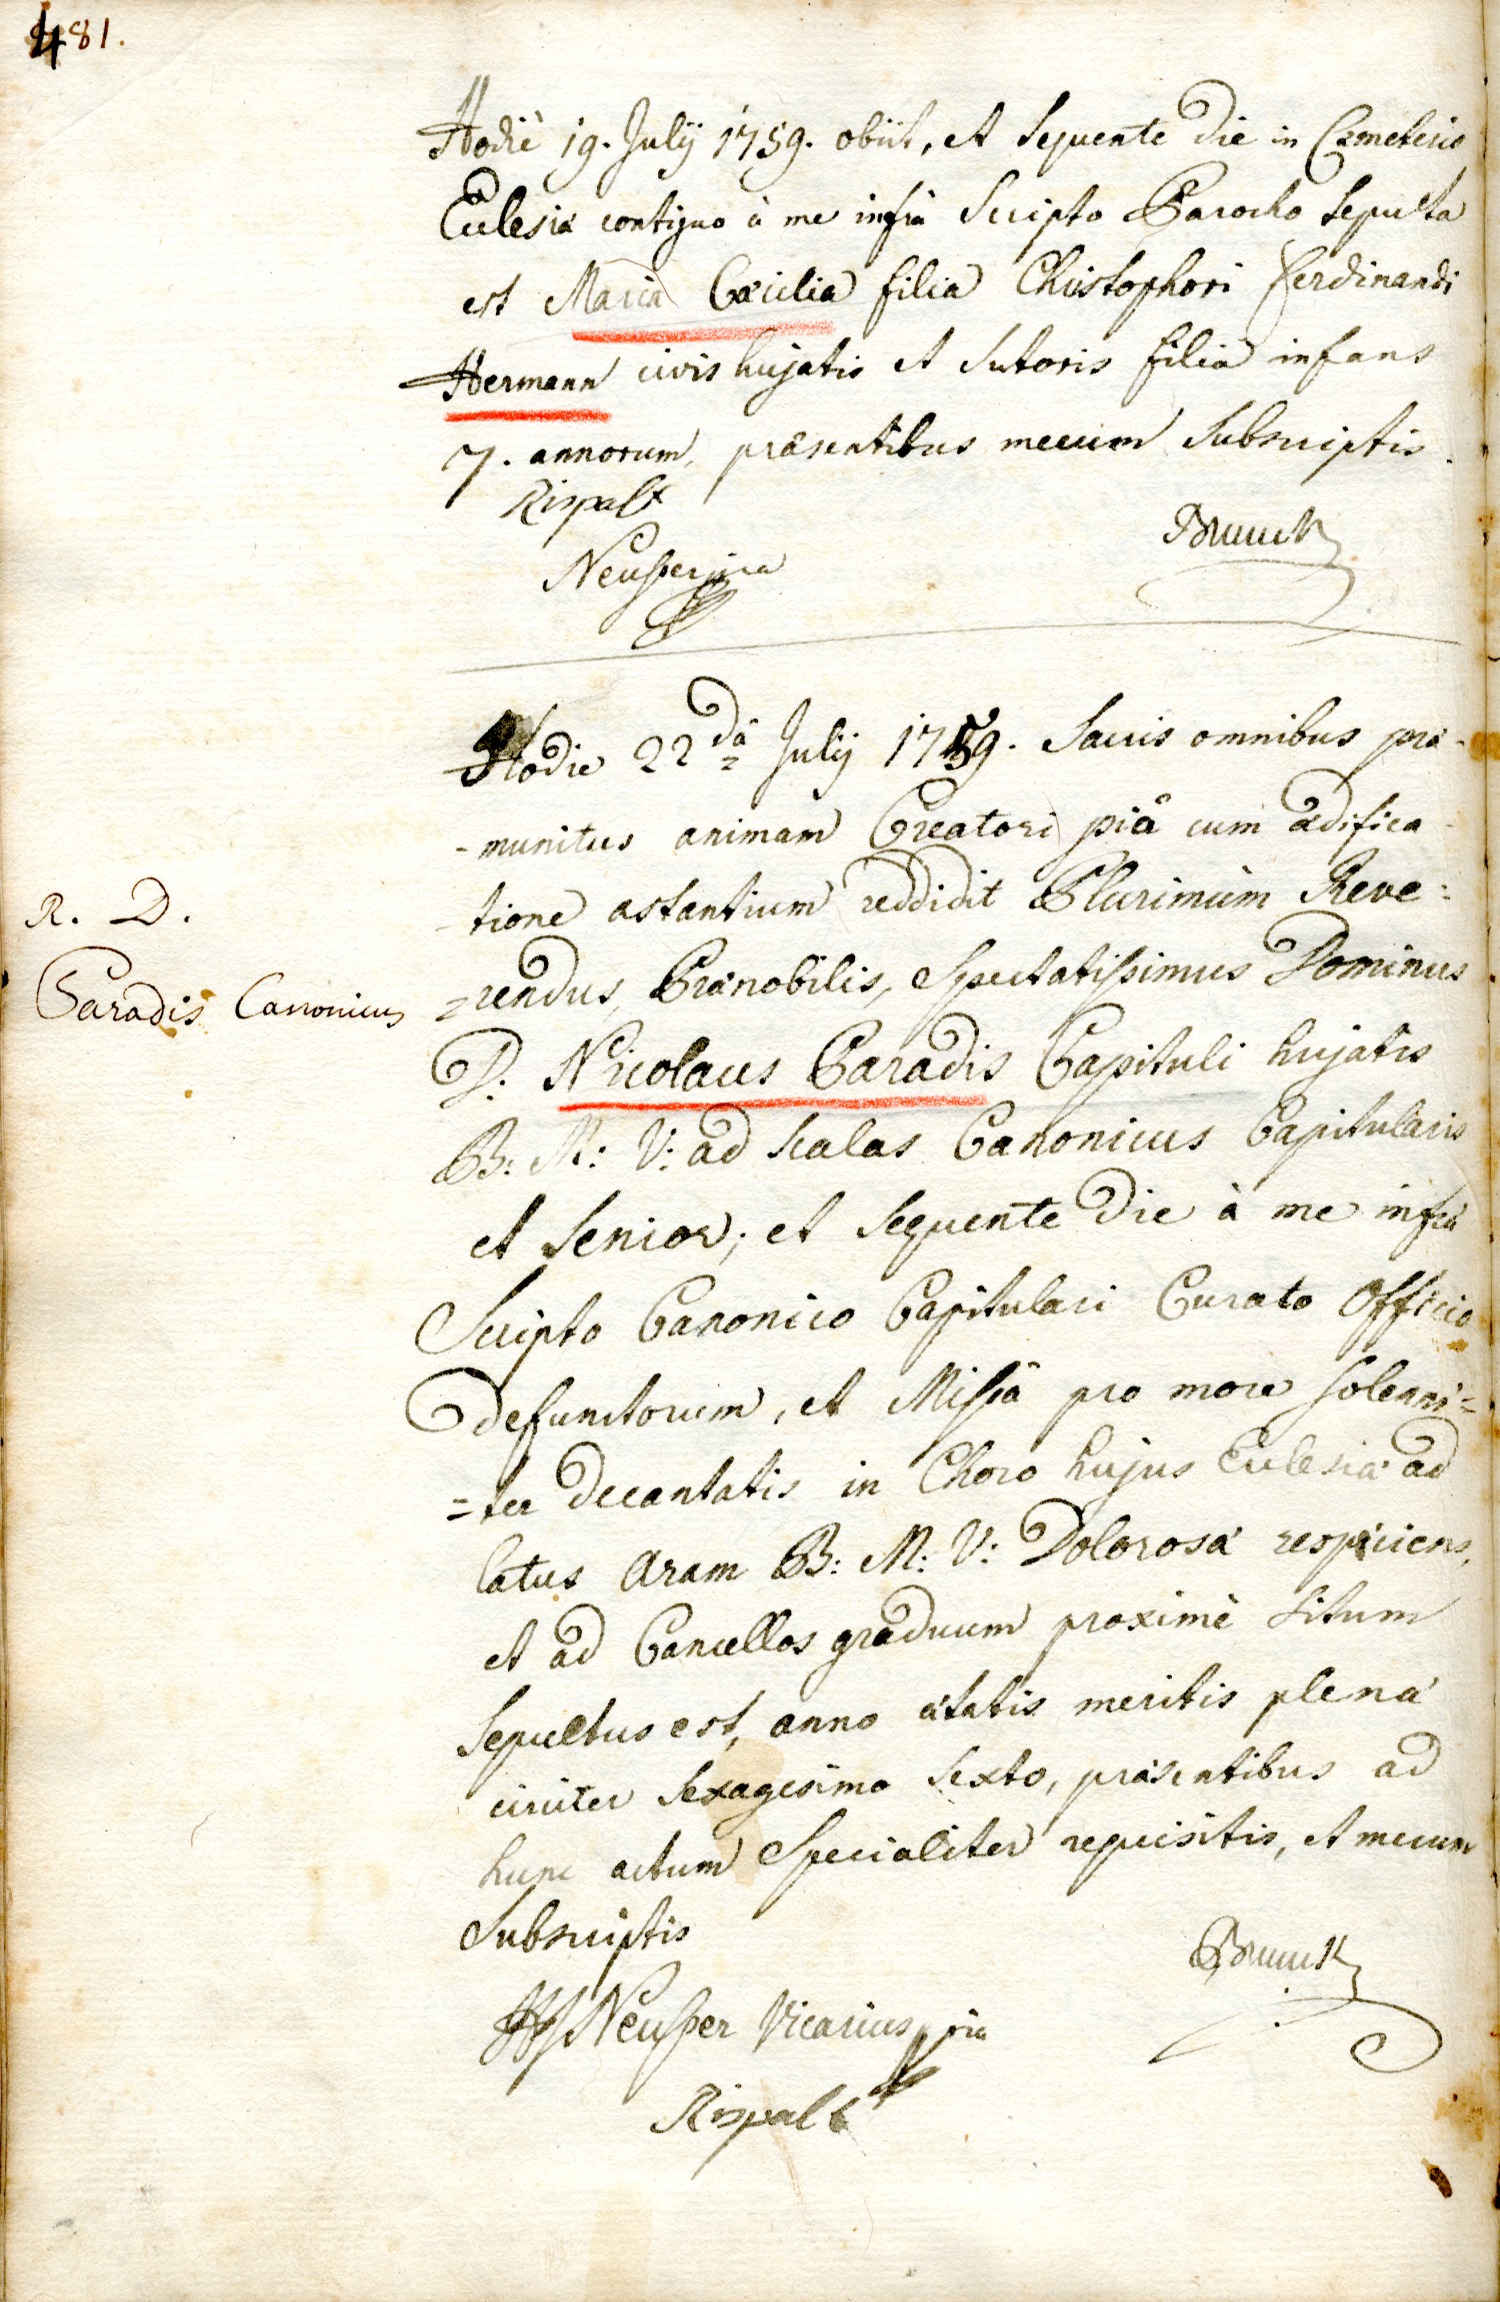 481.
Hodiè 19. Julij 1759. obiit, et sequente die in Cæmeterio
Ecclesiæ contiguo à me infrà Scripto Parocho sepulta
est Maria Cæcilia filia Christophori Ferdinandi
Hermann civis hujatis et sutoris filia infans
7. annorum, præsentibus mecum subscriptis.
Rispalt
Bruuck
Neusser
Hodie 22dâ Julij 1759. Sacris omnibus præ-
-munitus animam Creatori piâ cum ædifica-
-tione astantium reddidit Plurimùm Reve=
=rendus, Prænobilis, Spectatissimus Dominus
R. D.
Paradis Canonicus
D. Nicolaus Paradis Capituli hujatis
B: M: V: ad scalas Canonicus Capitularis
et Senior; et sequente die à me infrà
Scripto Canonico Capitulari Curato Officio
Defunctorum, et Missâ pro more solenni=
=ter decantatis in Choro hujus Ecclesiæ ad
latus Aram B: M: V: Dolorosæ respiciens,
et ad Cancellos graduum proximè situm
Sepultus est, anno ætatis meritis plenæ
circiter sexagesimo sexto, præsentibus ad
hunc actum Specialiter requisitis, et mecum
Subscriptis
Bruuck
Neusser Vicarius
Rispalt